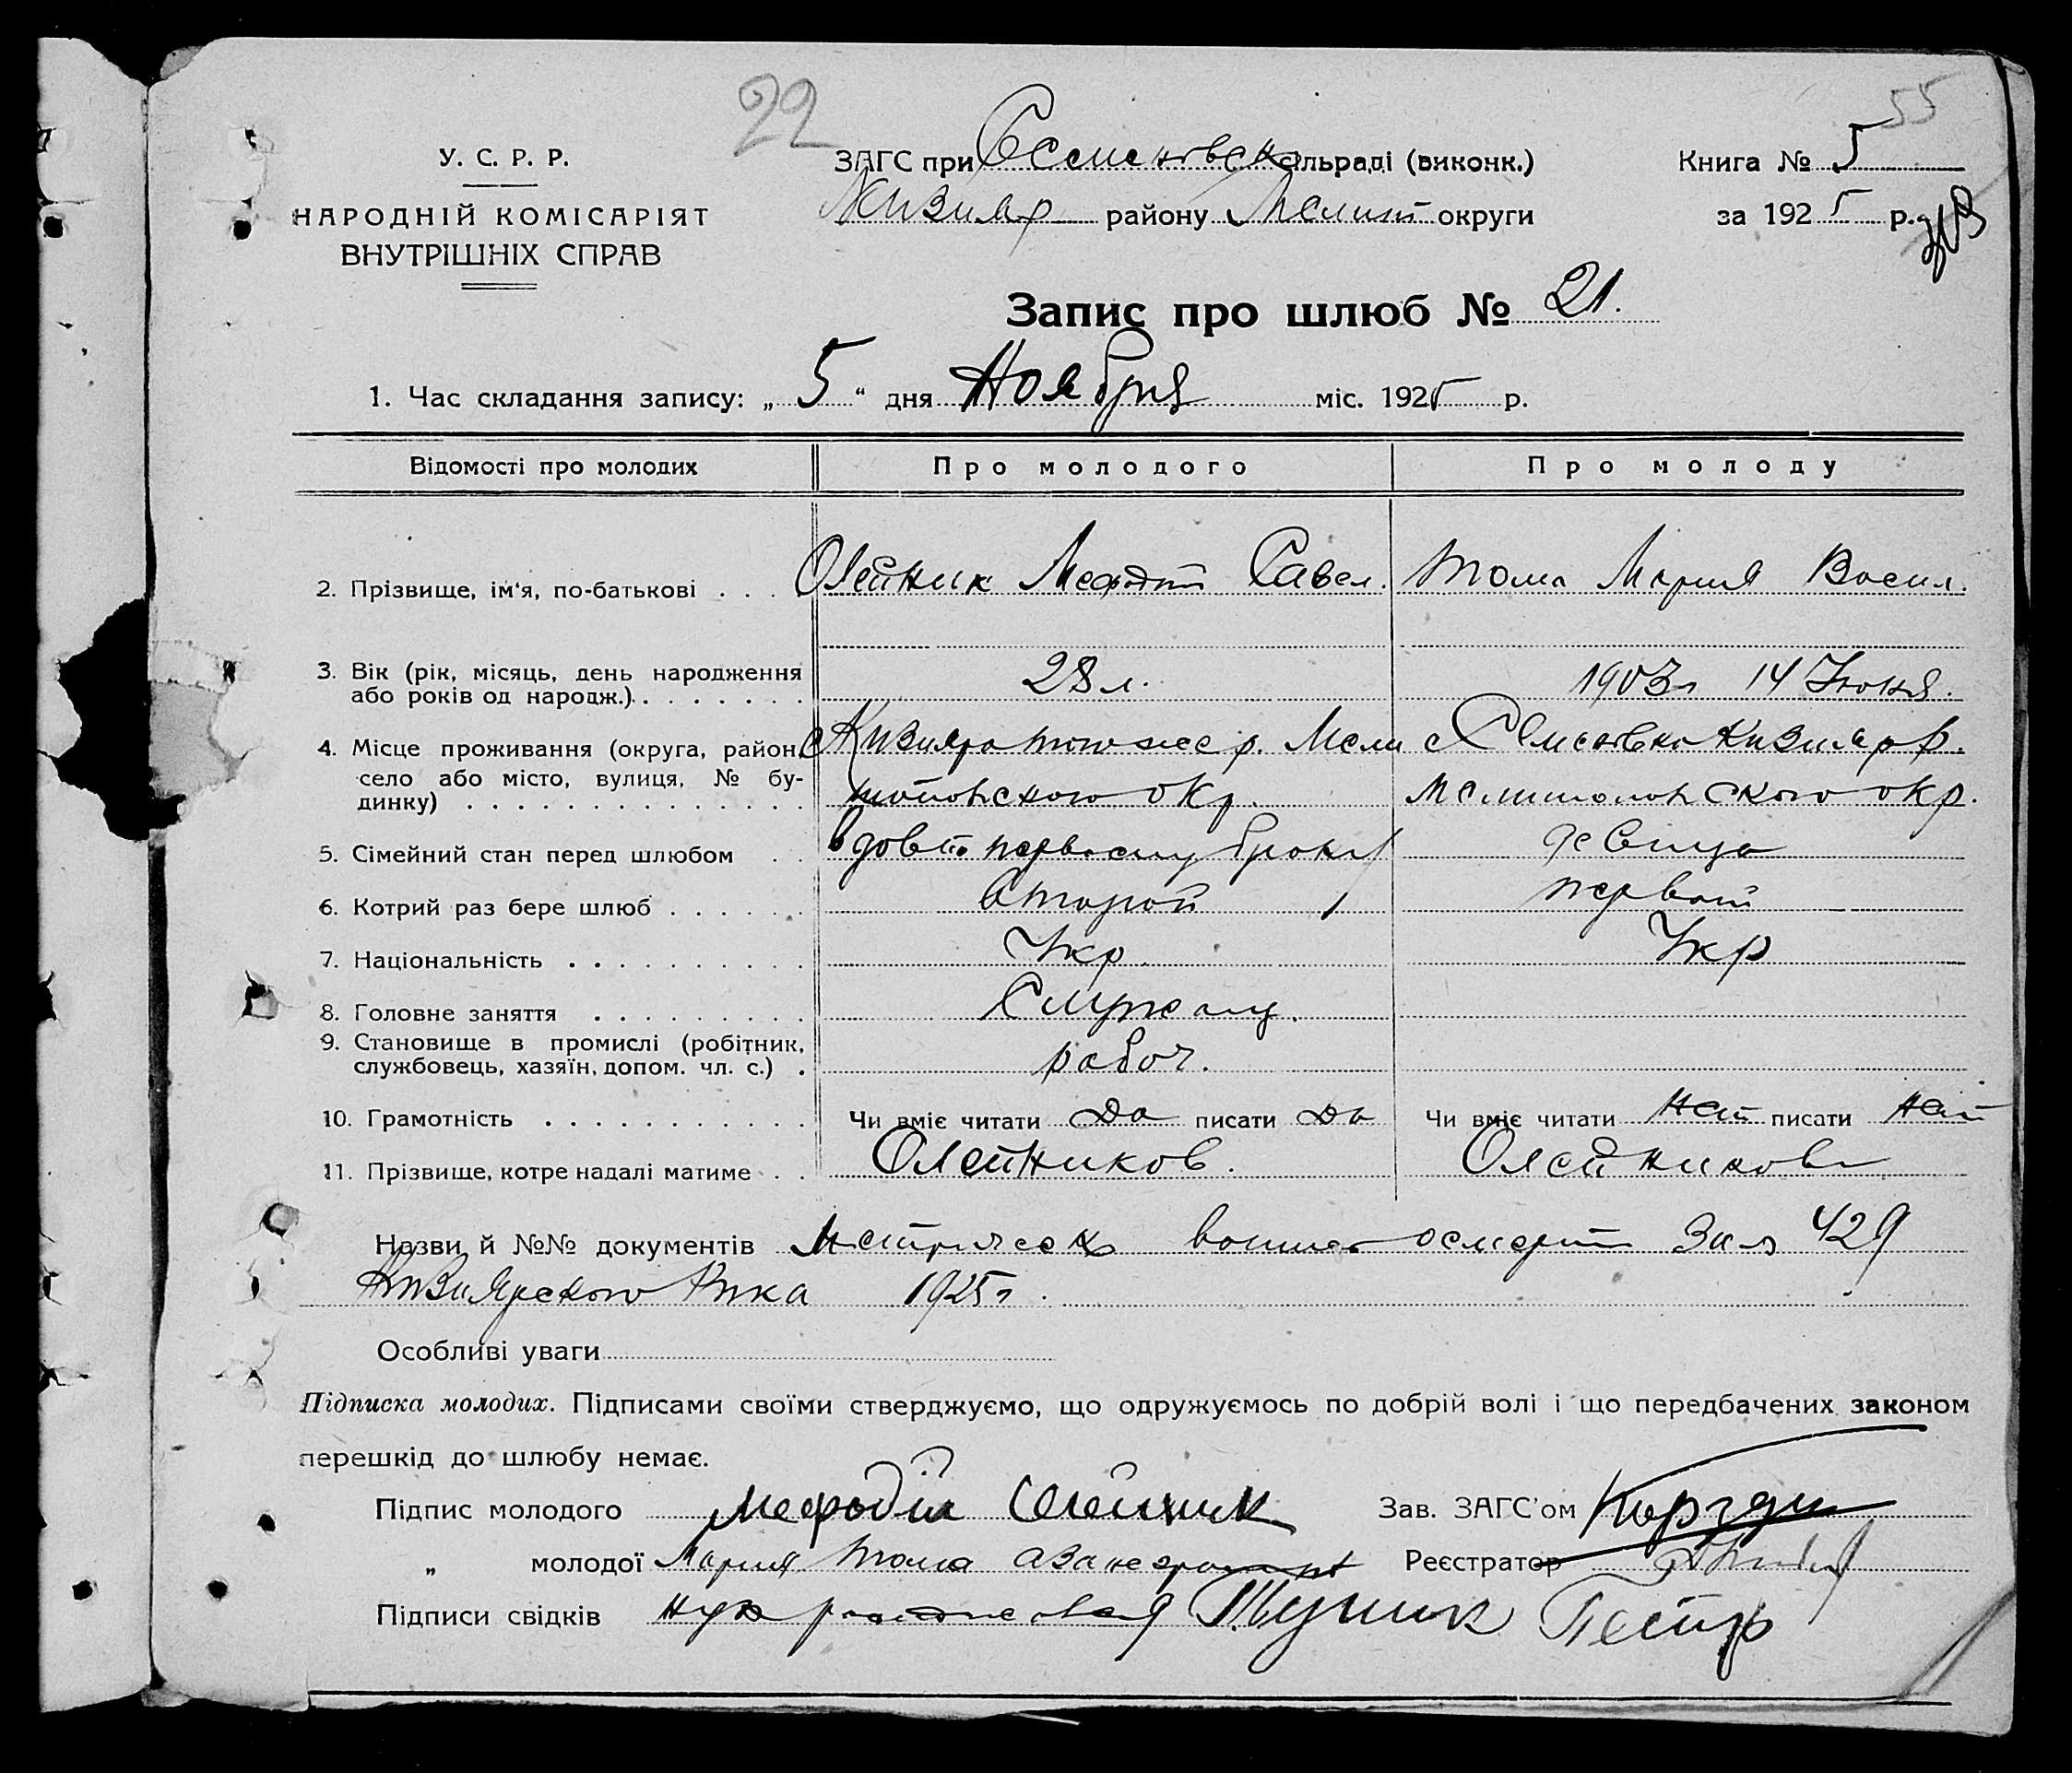 22
55
У. С. Р. Р.
НАРОДНІЙ КОМІСАРІЯТ
ВНУТРІШНІХ СПРАВ
ЗАГС при Семеновск сільраді (виконк.)
Кизияр району Мелит округи
Книга № 5
за 1925 р.
Запис про шлюб № 21.
1. Час складання запису: „ 5 “ дня Ноября міс. 1925 р.
Відомості про молодих Про молодого Про молоду
2. Прізвище, ім'я, по-батькові . . . Олейник Мефодий Савел. Тома Мария Васил.
3. Вік (рік, місяць, день народження
або років од народж.) . . . . . . . 28 л. 1903 г 14 Июня.
4. Місце проживання (округа, район, с Кизияра того же р. Мели с Семеновка Кизияр р.
село або місто, вулиця, № бу-
динку) . . . . . . . . . . . . . . топольского окр. Мелитопольского окр.
5. Сімейний стан перед шлюбом . . вдов по первому браку девица
6. Котрий раз бере шлюб . . . . . . второй первый
7. Національність . . . . . . . . . . Укр. Укр
8. Головне заняття . . . . . . . . . Служащ.
9. Становище в промислі (робітник,
службовець, хазяїн, допом. чл. с.) . рабоч.
10. Грамотність . . . . . . . . . . . Чи вміє читати Да писати Да Чи вміє читати Нет писати Нет
11. Прізвище, котре надалі матиме . . Олейников. Олейникова
Назви й №№ документів Метрическ о смерти За № 429
Кизиярского Рика 1925 г.
Особливі уваги
Підписка молодих. Підписами своїми стверджуємо, що одружуємось по добрій волі і що передбачених законом
перешкід до шлюбу немає.
Підпис молодого Мефодий Олейник Зав. ЗАГС'ом
„ молодої Мария Тома а за неграмот Реєстратор
Підписи свідків ную расписался Петр